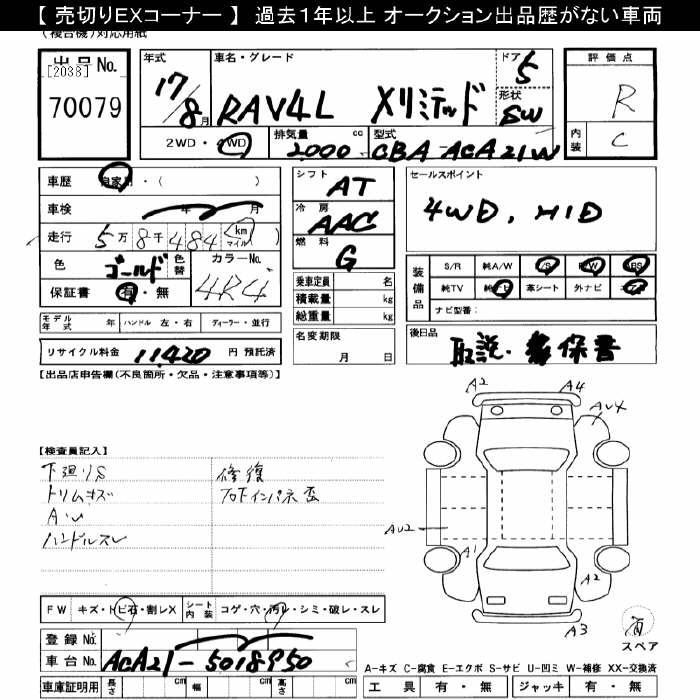 【 売切りEXコーナー 】 過去１年以上 オークション出品歴がない車両
(複合機)対応用紙
出品No.
[2038]
70079
年式
17/8月
車名・グレード
RAV4L Xリミテッド
ドア
5
形状
SW
評価点
R
内装
C
2WD・4WD
排気量
2000 cc
型式
CBA-ACA21W
車歴 自家用・( )
車検 年 月
走行 5万8千484 km マイル
色 ゴールド 色替
カラーNo.
4R4
保証書 有・無
シフト
AT
冷房
AAC
燃料
G
セールスポイント
4WD、HID
乗車定員 名
積載量 kg
総重量 kg
装備品
S/R 純A/W P/S P/W ABS
純TV 純ナビ 革シート 外ナビ エアB
ナビ型番:
モデル年式 年 ハンドル 左・右 ディーラー・並行
リサイクル料金 11,420 円 預託済
名変期限
月 日
後日品
取説・保書
【出品店申告欄(不良箇所・欠品・注意事項等)】
【検査員記入】
下廻りS
トリムキズ
A・U
ハンドルスレ
修復
右下インパネ歪
A2
A4
AU4
AU2
A1
A2
A3
スペア
FW キズ・トビ石・割レX
シート内装 コゲ・穴・汚レ・シミ・破レ・スレ
登録No.
車台No. ACA21-5018950
車庫証明用 長さ cm 幅 cm 高さ cm
A-キズ C-腐食 E-エクボ S-サビ U-凹ミ W-補修 XX-交換済
工具 有・無 ジャッキ 有・無